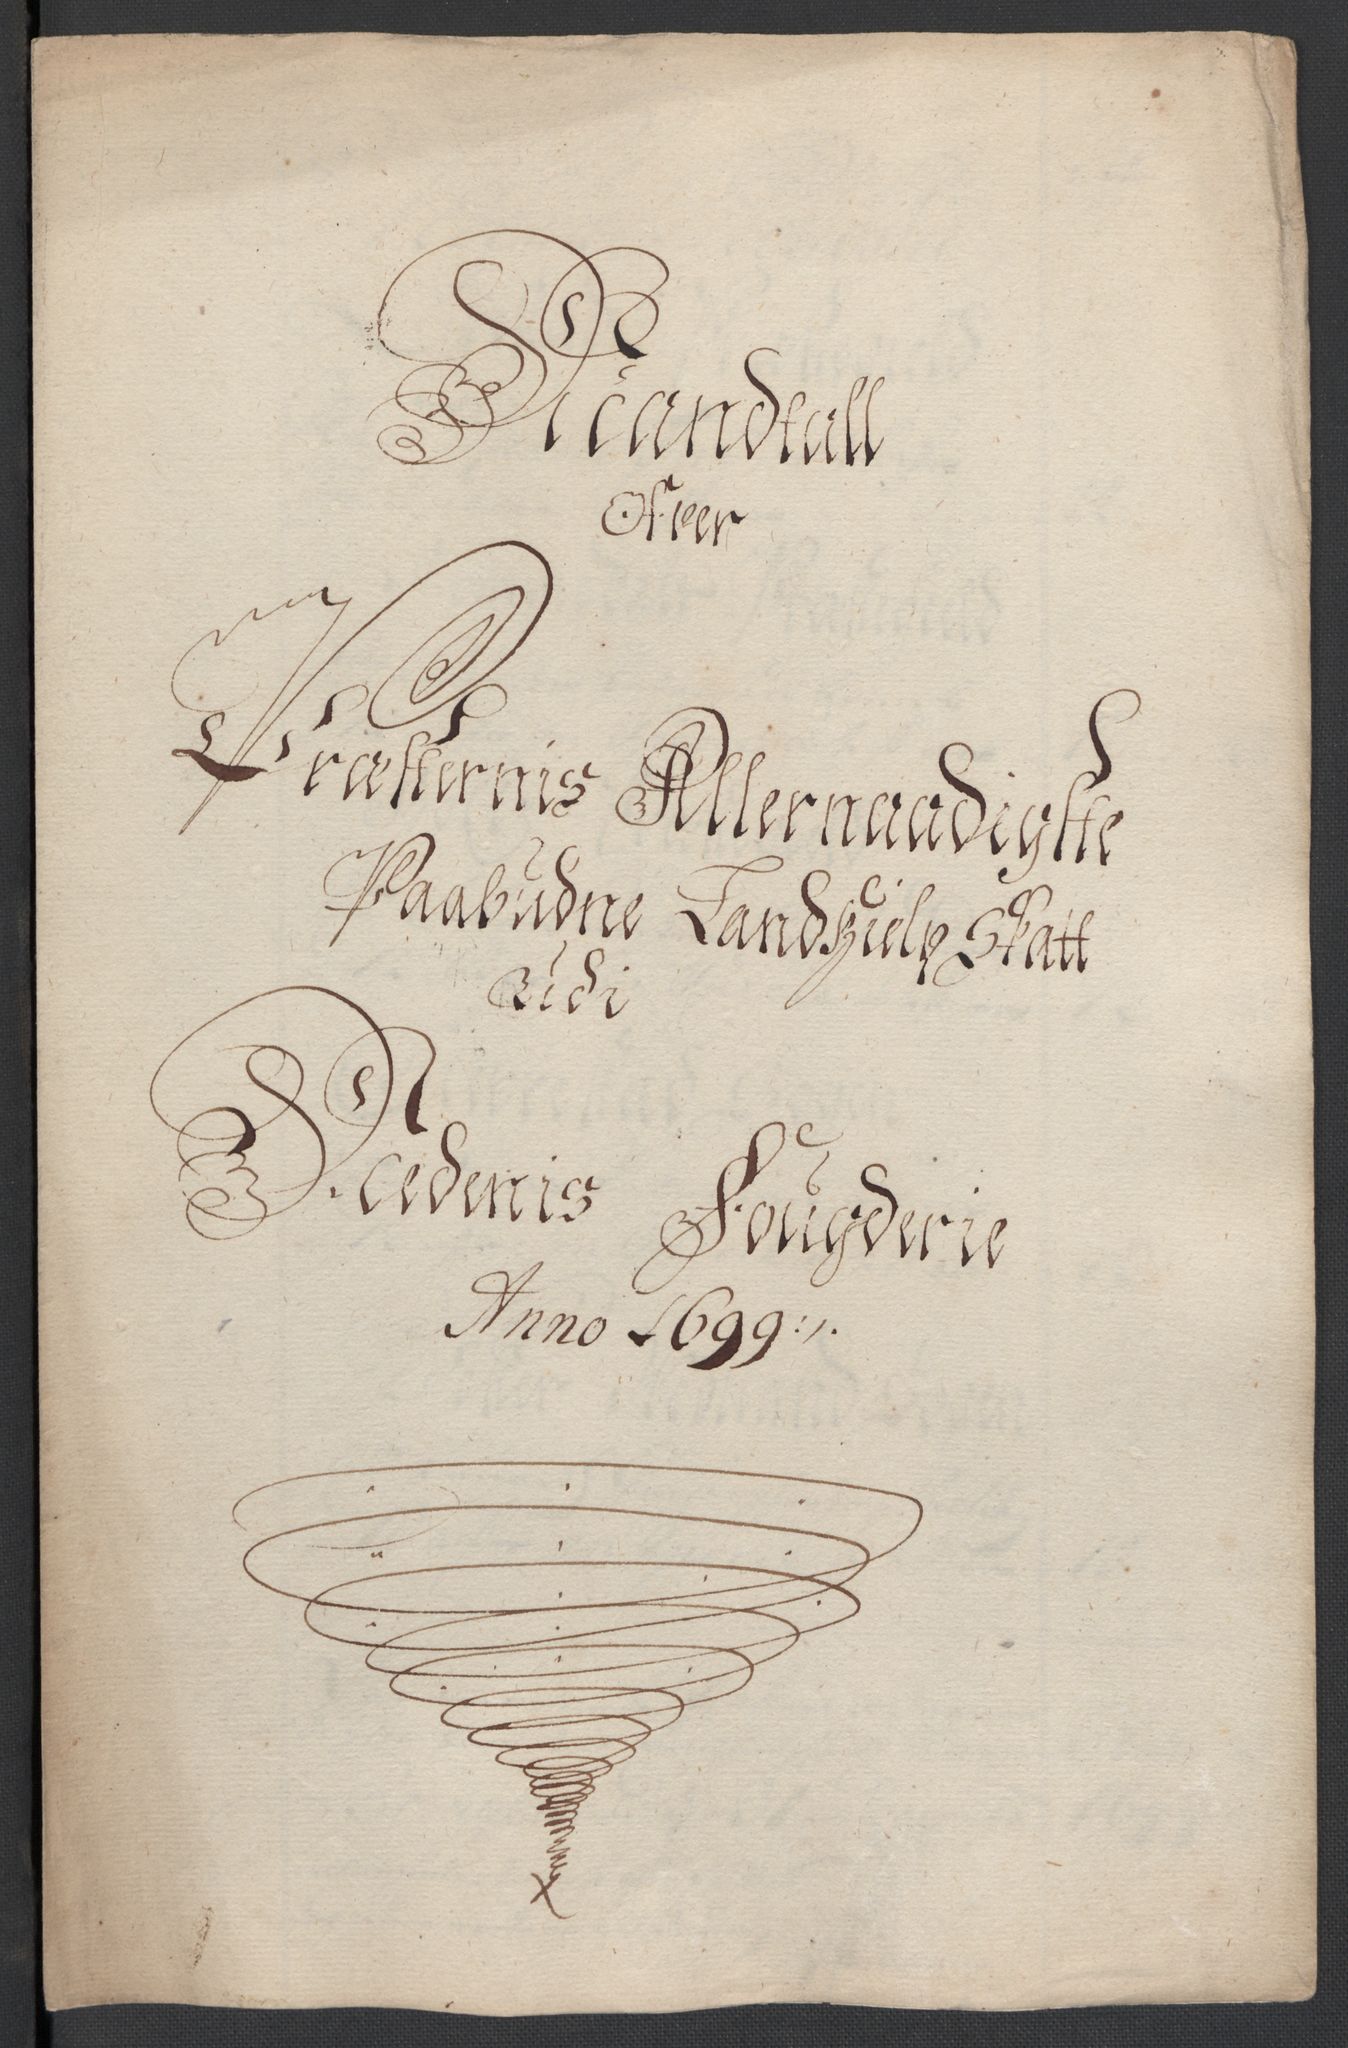 Mandtall
Ofver
Præsternis Allernaadigste
Paabudne Landhielp Skatt
Udi
Nedenis Fougderie
Anno 1699